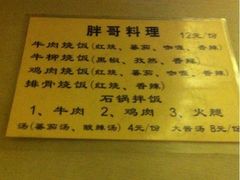 胖哥料理
12元/份
牛肉烧饭(红烧、蕃茄、咖喱、香辣)
牛柳烧饭(黑椒、孜然、香辣)
鸡肉烧饭(红烧、蕃茄、咖喱、香辣)
排骨烧饭(红烧、香辣)
石锅拌饭
1、牛肉 2、鸡肉 3、火腿
汤(蕃茄汤、酸辣汤) 4元/份 大酱汤 8元/份